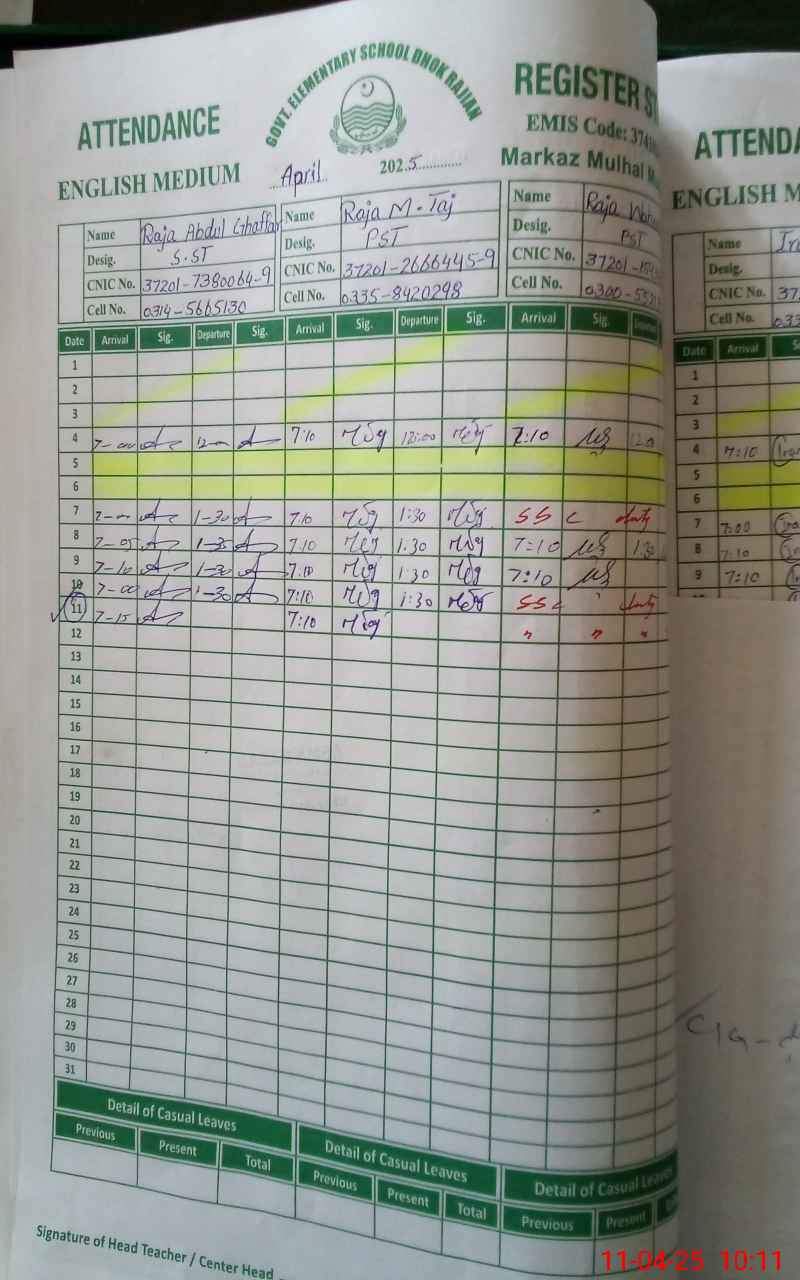 GOVT. ELEMENTARY SCHOOL DHOK RAJIAN
ATTENDANCE
REGISTER
EMIS Code:
ENGLISH MEDIUM
April 2025
Markaz Mulhal
Name Raja Abdul Ghaffar Name Raja M. Taj Name Raja
Desig. S.ST Desig. PST Desig. PST
CNIC No. 37201-7380064-9 CNIC No. 37201-2666445-9 CNIC No. 37201-
Cell No. 0314-5665130 Cell No. 0335-8420298 Cell No. 0300-
Date Arrival Sig. Departure Sig. Arrival Sig. Departure Sig. Arrival Sig. Departure
1
2
3
4 7-00 12-00 7:10 12:00 7:10
5
6
7 7-00 1-30 7:10 1:30 SS C duty
8 7-05 1-30 7:10 1:30 7:10 1:30
9 7-10 1-30 7:10 1:30 7:10
10 7-00 1-30 7:10 1:30 SS C duty
11 7-15 7:10 " " "
12
13
14
15
16
17
18
19
20
21
22
23
24
25
26
27
28
29
30
31
Detail of Casual Leaves Detail of Casual Leaves Detail of Casual Leaves
Previous Present Total Previous Present Total Previous Present
Signature of Head Teacher / Center Head
ATTENDA
ENGLISH M
Name
Desig.
CNIC No. 37
Cell No. 033
Date Arrival S
1
2
3
4 7:10
5
6
7 7:00
8 7:10
9 7:10
11-04-25 10:11